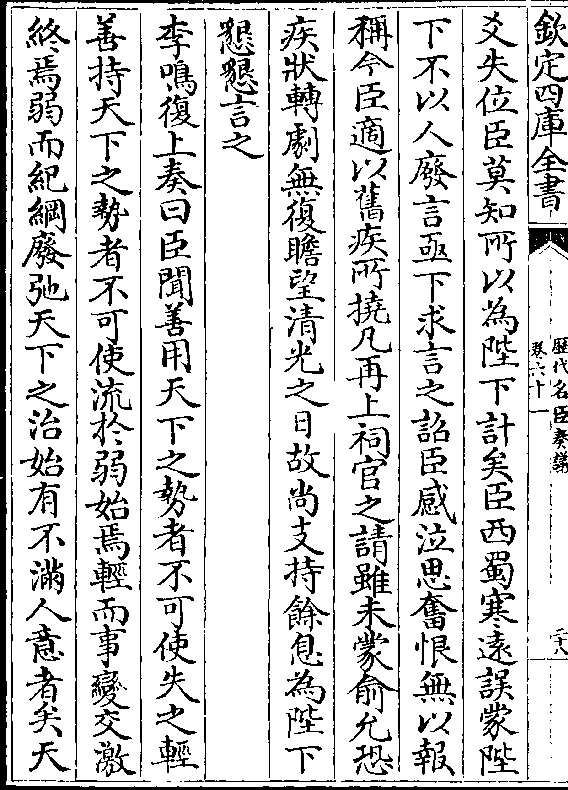 欽定四庫全書
歷代名臣奏議
卷六十一
二十八
爻失位臣莫知所以為陛下計矣臣西蜀寒遠誤蒙陛
下不以人廢言亟下求言之詔臣感泣思奮恨無以報
稱今臣適以舊疾所撓凡再上祠官之請雖未蒙俞允恐
疾狀轉劇無復瞻望清光之日故尚支持餘息為陛下
懇懇言之
李鳴復上奏曰臣聞善用天下之勢者不可使失之輕
善持天下之勢者不可使流於弱始焉輕而事變交激
終焉弱而紀綱廢弛天下之治始有不滿人意者矣天